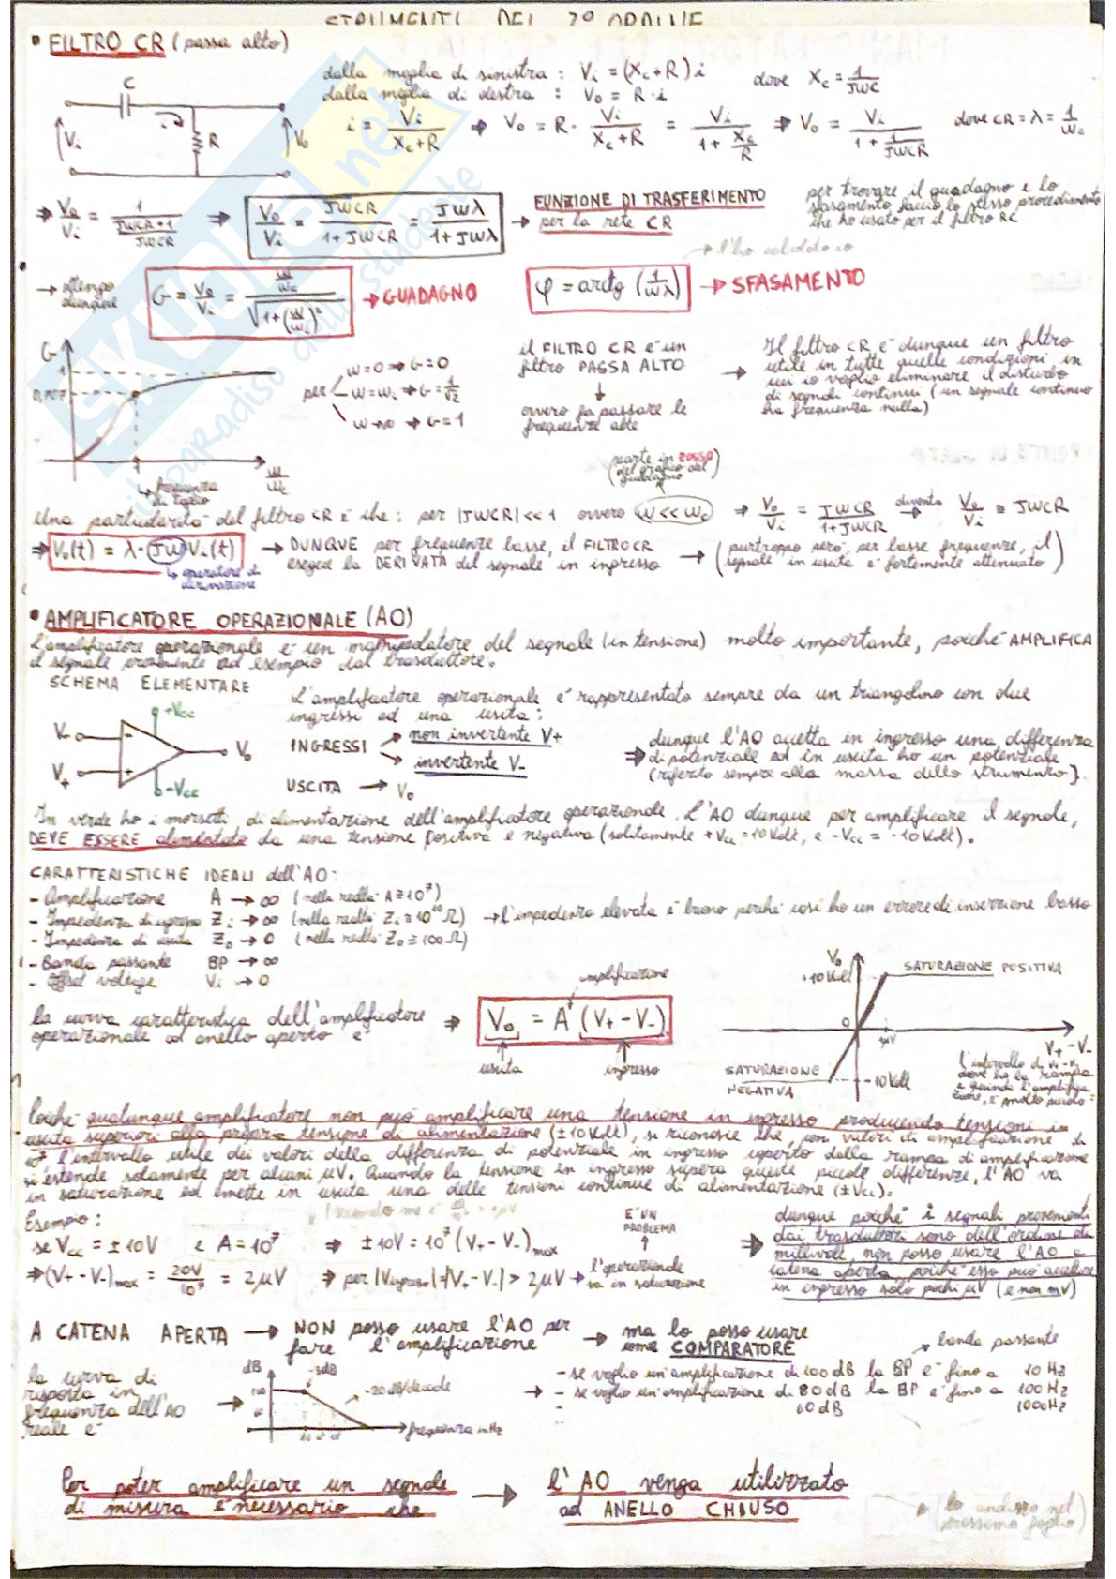 STRUMENTI DEL 2° ORDINE
• FILTRO CR (passa alto)
dalla maglia di sinistra : Vi = (Xc + R) i dove Xc = 1/JWC
dalla maglia di destra : Vo = R · i
C
Vi
R
Vo
i = Vi/(Xc + R) → Vo = R · Vi/(Xc + R) = Vi/(1 + Xc/R) ⇒ Vo = Vi/(1 + 1/JWCR) dove CR = λ = 1/Wc
⇒ Vo/Vi = 1/((JWCR+1)/JWCR) → Vo/Vi = JWCR/(1 + JWCR) = JWλ/(1 + JWλ) → FUNZIONE DI TRASFERIMENTO
per la rete CR
per trovare il guadagno e lo
sfasamento faccio lo stesso procedimento
che ho usato per il filtro RC
→ ottengo
dunque
G = Vo/Vi = (W/Wc)/√(1 + (W/Wc)²) → GUADAGNO
φ = arctg (1/Wλ) → SFASAMENTO
G
1
0,707
frequenza
di taglio
W/Wc
per
W=0 ⇒ G=0
W=Wc ⇒ G=1/√2
W→∞ ⇒ G=1
il FILTRO CR è un
filtro PASSA ALTO
ovvero fa passare le
frequenze alte
→ Il filtro CR è dunque un filtro
utile in tutte quelle condizioni in
cui io voglio eliminare il disturbo
di segnali continui (un segnale continuo
ha frequenza nulla)
(parte in rosso
del grafico del
guadagno)
Una particolarità del filtro CR è che : per |JWCR| << 1 ovvero W << Wc ⇒ Vo/Vi = JWCR/(1+JWCR) diventa → Vo/Vi ≅ JWCR
⇒ Vo(t) = λ · JW Vi(t) → DUNQUE per frequenze basse, il FILTRO CR
esegue la DERIVATA del segnale in ingresso → (purtroppo però, per basse frequenze, il
segnale in uscita è fortemente attenuato)
operatore di
derivazione
• AMPLIFICATORE OPERAZIONALE (AO)
L'amplificatore operazionale è un manipolatore del segnale (in tensione) molto importante, poiché AMPLIFICA
il segnale proveniente ad esempio dal trasduttore.
SCHEMA ELEMENTARE
+Vcc
V-
V+
Vo
-Vcc
L'amplificatore operazionale è rappresentato sempre da un triangolino con due
ingressi ed una uscita :
INGRESSI
non invertente V+
invertente V-
USCITA → Vo
⇒ dunque l'AO accetta in ingresso una differenza
di potenziale ed in uscita ho un potenziale
(riferito sempre alla massa dello strumento).
In verde ho i morsetti di alimentazione dell'amplificatore operazionale. L'AO dunque per amplificare il segnale,
DEVE ESSERE alimentato da una tensione positiva e negativa (solitamente +Vcc = 10 Volt, e -Vcc = -10 Volt).
CARATTERISTICHE IDEALI dell'AO :
- Amplificazione A → ∞ (nella realtà A≅10⁷)
- Impedenza di ingresso Zi → ∞ (nella realtà Zi ≅ 10¹⁰ Ω) → l'impedenza elevata è buono perché così ho un errore di inserzione basso
- Impedenza di uscita Zo → 0 (nella realtà Zo ≅ 100 Ω)
- Banda passante BP → ∞
- Offset voltage Vi → 0
la curva caratteristica dell'amplificatore
operazionale ad anello aperto è
⇒ Vo = A (V+ - V-)
amplificazione
uscita
ingresso
Vo
+10 Volt
SATURAZIONE POSITIVA
0
1μV
V+ - V-
SATURAZIONE
NEGATIVA
-10 Volt
l'intervallo di V+-V-
dove ho la rampa
e quindi l'amplifica
zione, è molto piccolo :
Poiché qualunque amplificatore non può amplificare una tensione in ingresso producendo tensioni in
uscita superiori alla propria tensione di alimentazione (±10 Volt), si riconosce che, con valori di amplificazione di
10⁷, l'intervallo utile dei valori della differenza di potenziale in ingresso coperto dalla rampa di amplificazione
si estende solamente per alcuni μV. Quando la tensione in ingresso supera queste piccole differenze, l'AO va
in saturazione ed emette in uscita una delle tensioni continue di alimentazione (±Vcc).
Esempio :
se Vcc = ±10V e A = 10⁷ ⇒ ±10V = 10⁷ (V+ - V-)max
⇒ (V+ - V-)max = 20V/10⁷ = 2μV ⇒ per |Vingresso| = |V+ - V-| > 2μV → l'operazionale
va in saturazione
E' UN
PROBLEMA
⇒ dunque poiché i segnali provenienti
dai trasduttori sono dell'ordine dei
millivolt, non posso usare l'AO a
catena aperta, poiché esso può accettare
in ingresso solo pochi μV (e non mV)
A CATENA APERTA → NON posso usare l'AO per
fare l'amplificazione → ma lo posso usare
come COMPARATORE
la curva di
risposta in
frequenza dell'AO
reale è
dB
-3dB
-20 dB/decade
frequenza in Hz
banda passante
- se voglio un'amplificazione di 100 dB la BP è fino a 10 Hz
- se voglio un'amplificazione di 80 dB la BP è fino a 100 Hz
- 60 dB 1000 Hz
Per poter amplificare un segnale
di misura è necessario che → l'AO venga utilizzato
ad ANELLO CHIUSO
(lo andiamo nel
prossimo foglio)
SKUOLA.net
il paradiso dello studente